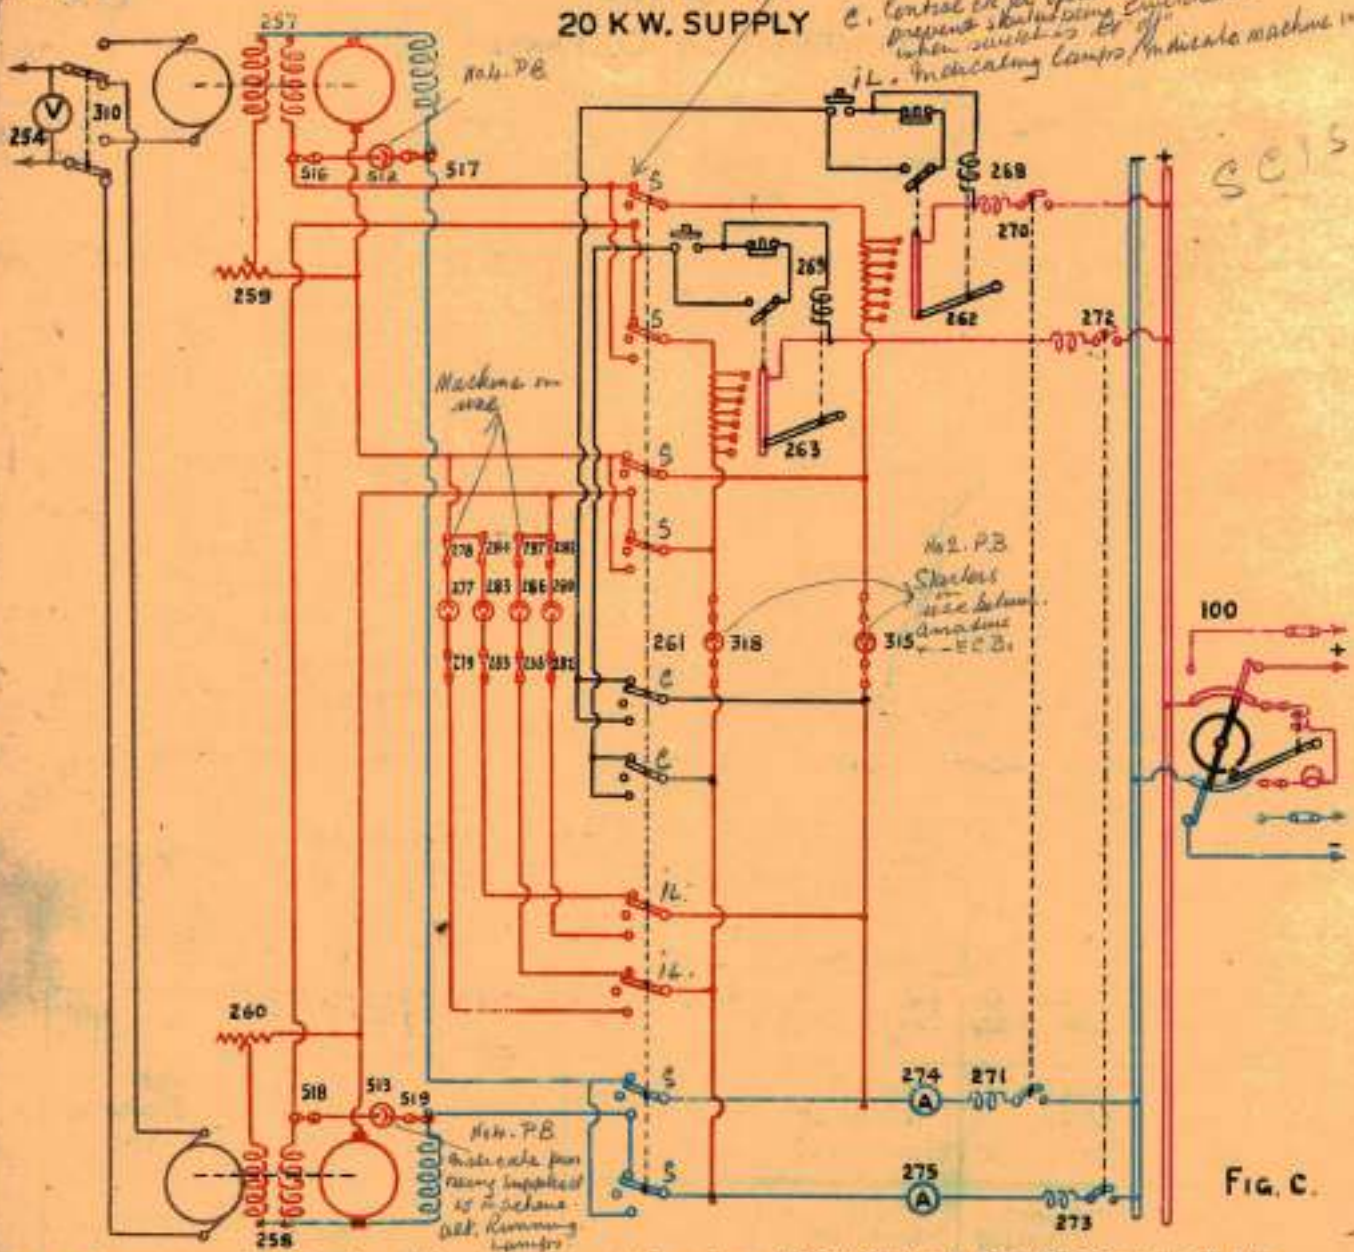 20 KW. SUPPLY
C. Control
when switch is
iL. Indicating Lamps, Indicate machine in
SCIS
257
No 4. P.B.
V
310
254
516
512
517
S
268
270
259
269
262
272
S
263
Machine in
use
S
S
278 284 287 281
277 283 286 280
279 285
No 2. P.B.
Starters
in
use between
armature
261
318
315
100
+
-
C
C
iL.
iL.
260
518
513
519
S
274
A
271
No 4. P.B.
Indicate
being supplied
to machine
alt. Running
Lamps.
S
275
A
273
258
FIG. C.